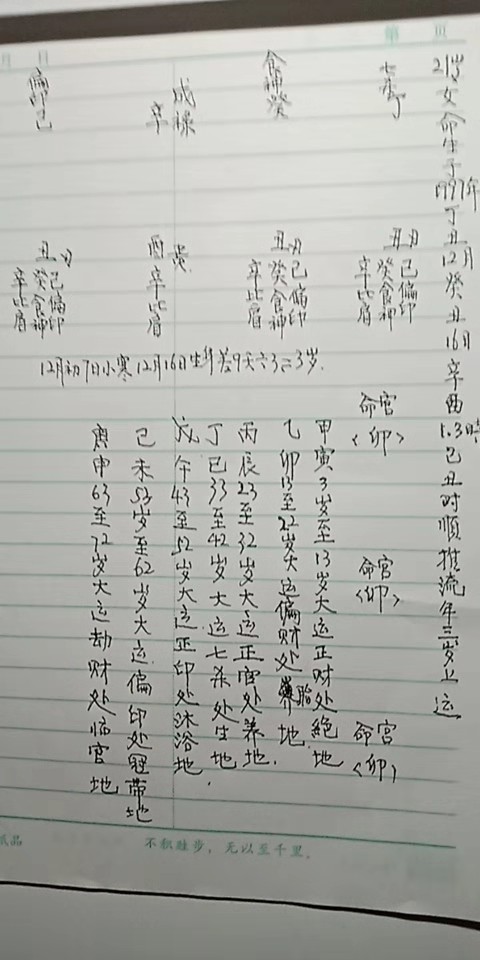 第 页
月 日
21岁女命生于1997年丁丑12月癸丑16日辛酉1.3時己丑时順推流年三岁上运
七杀丁
食神癸
戍禄辛
偏印己
丑月
己偏印
癸食神
辛比肩
丑月
己偏印
癸食神
辛比肩
酉
辛比肩
丑月
己偏印
癸食神
辛比肩
12月初7日小寒12月16日生年差9天六3二3岁.
命宫<卯>
命宫<卯>
命宫<卯>
甲寅3岁至13岁大运正财处絕地
乙卯13至22岁大运偏财处胎地.
丙辰23至32岁大运正官处养地.
丁巳33至42岁大运七杀处生地.
戊午43至52岁大运正印处沐浴地
己未53岁至62岁大运偏印处冠带地
庚申63至72岁大运劫财处临官地
纸品
不积跬步，无以至千里。